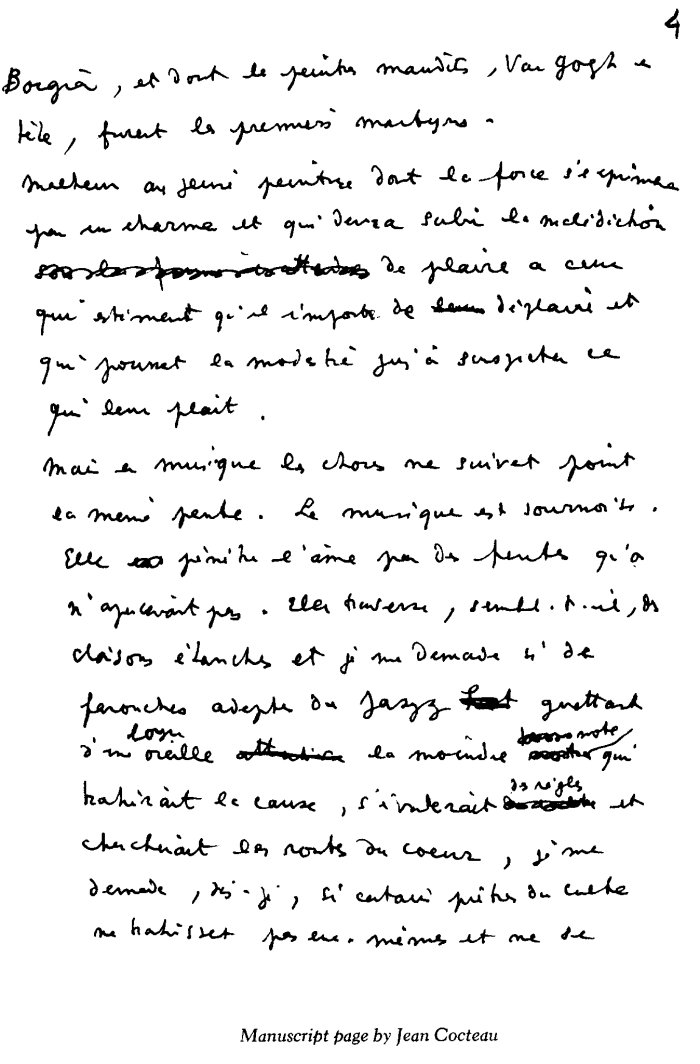 4
Borgia, et dont les peintres maudits, Van Gogh en
tête, furent les premiers martyrs.
Malheur au jeune peintre dont la force s'exprimera
par un charme et qui devra subir la malédiction
de plaire a ceux
qui estiment qu'il importe de déplaire et
qui poussent la modestie jusqu'à suspecter ce
qui leur plait.
Mais en musique les choses ne suivent point
la même pente. La musique est sournoise.
Elle pénètre l'âme par des fentes qu'on
n'apercevait pas. Elle traverse, semble-t-il, des
cloisons étanches et je me demande si de
farouches adeptes du Jazz guettant
d'une oreille la moindre note qui
trahirait la cause, s'évaderait des règles et
chercherait les routes du coeur, je me
demande, dis-je, si certains prêtres du culte
ne trahissent pas eux-mêmes et ne se
Manuscript page by Jean Cocteau